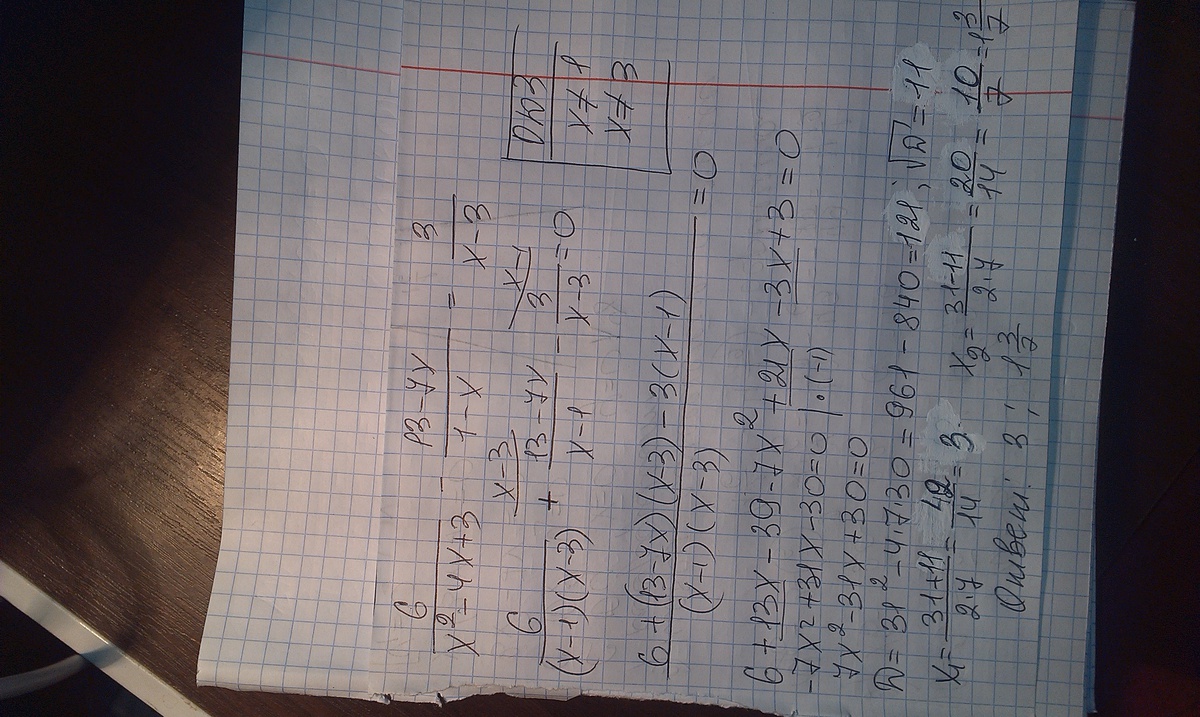 6/(x²-4x+3) - (13-7x)/(1-x) = 3/(x-3)
ОДЗ
x≠1
x≠3
6/((x-1)(x-3)) + (13-7x)/(x-1) (x-3) - 3/(x-3) (x-1) = 0
(6+(13-7x)(x-3)-3(x-1))/((x-1)(x-3)) = 0
6+13x-39-7x²+21x-3x+3=0
-7x²+31x-30=0 |·(-1)
7x²-31x+30=0
D=31²-4·7·30=961-840=121; √D=11
x₁=(31+11)/(2·7)=42/14=3. x₂=(31-11)/(2·7)=20/14=10/7=1 3/7
Ответ: 3; 1 3/7